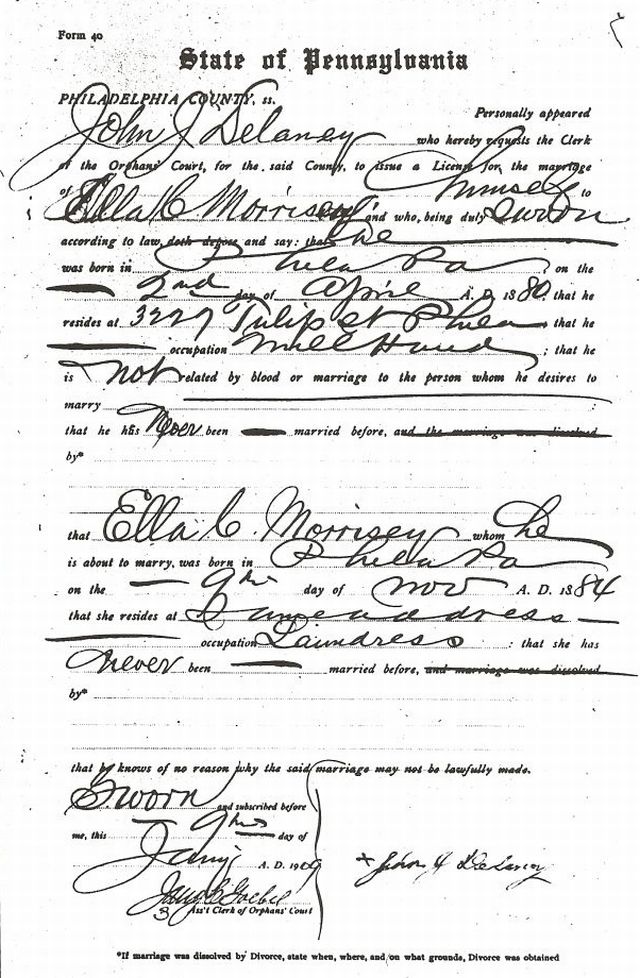 Form 40
State of Pennsylvania
PHILADELPHIA COUNTY, ss.
Personally appeared
John J Delaney who hereby requests the Clerk
of the Orphans' Court, for the said County, to issue a License for the marriage
of himself to
Ella C Morrisey and who, being duly Sworn
according to law, doth depose and say: that he
was born in Phila Pa on the
2nd day of April A. D. 1880 that he
resides at 3227 Tulip St Phila that he
occupation Mill Hand ; that he
is not related by blood or marriage to the person whom he desires to
marry
that he has Never been married before, and the marriage was dissolved
by*
that Ella C. Morrisey whom he
is about to marry, was born in Phila Pa
on the 9th day of Nov A. D. 1884
that she resides at Same address
occupation Laundress : that she has
never been married before, and marriage was dissolved
by*
that he knows of no reason why the said marriage may not be lawfully made.
Sworn and subscribed before
me, this 9th day of
Jany A. D. 1909
Goebel
Ass't Clerk of Orphans' Court
+ John J Delaney
*If marriage was dissolved by Divorce, state when, where, and on what grounds, Divorce was obtained